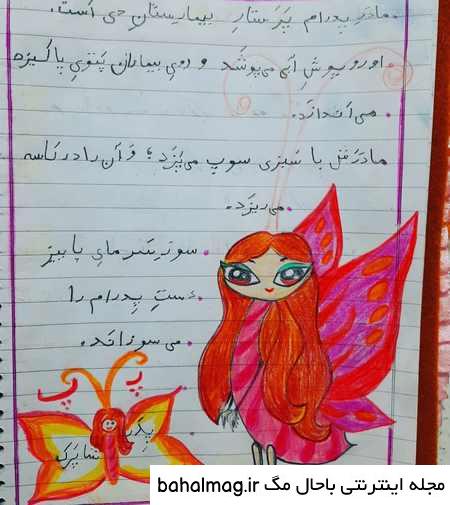 مادرِ پدرام پَرَستارِ بیمارستانِ دی است.
او روپوشِ آبی می‌پوشَد و رویِ بیماران پَتویِ پاکیزه
می‌اَندازَد.
مادَر با سَبزی سوپ می‌پَزَد؛ وَ آن را دَر کاسه
می‌ریزَد.
سوزَنِ
پاییز
دَستِ پِدرام را
می‌سوزانَد.
پـ پ
شاپَرَک
مجله اینترنتی باحال مگ bahalmag.ir